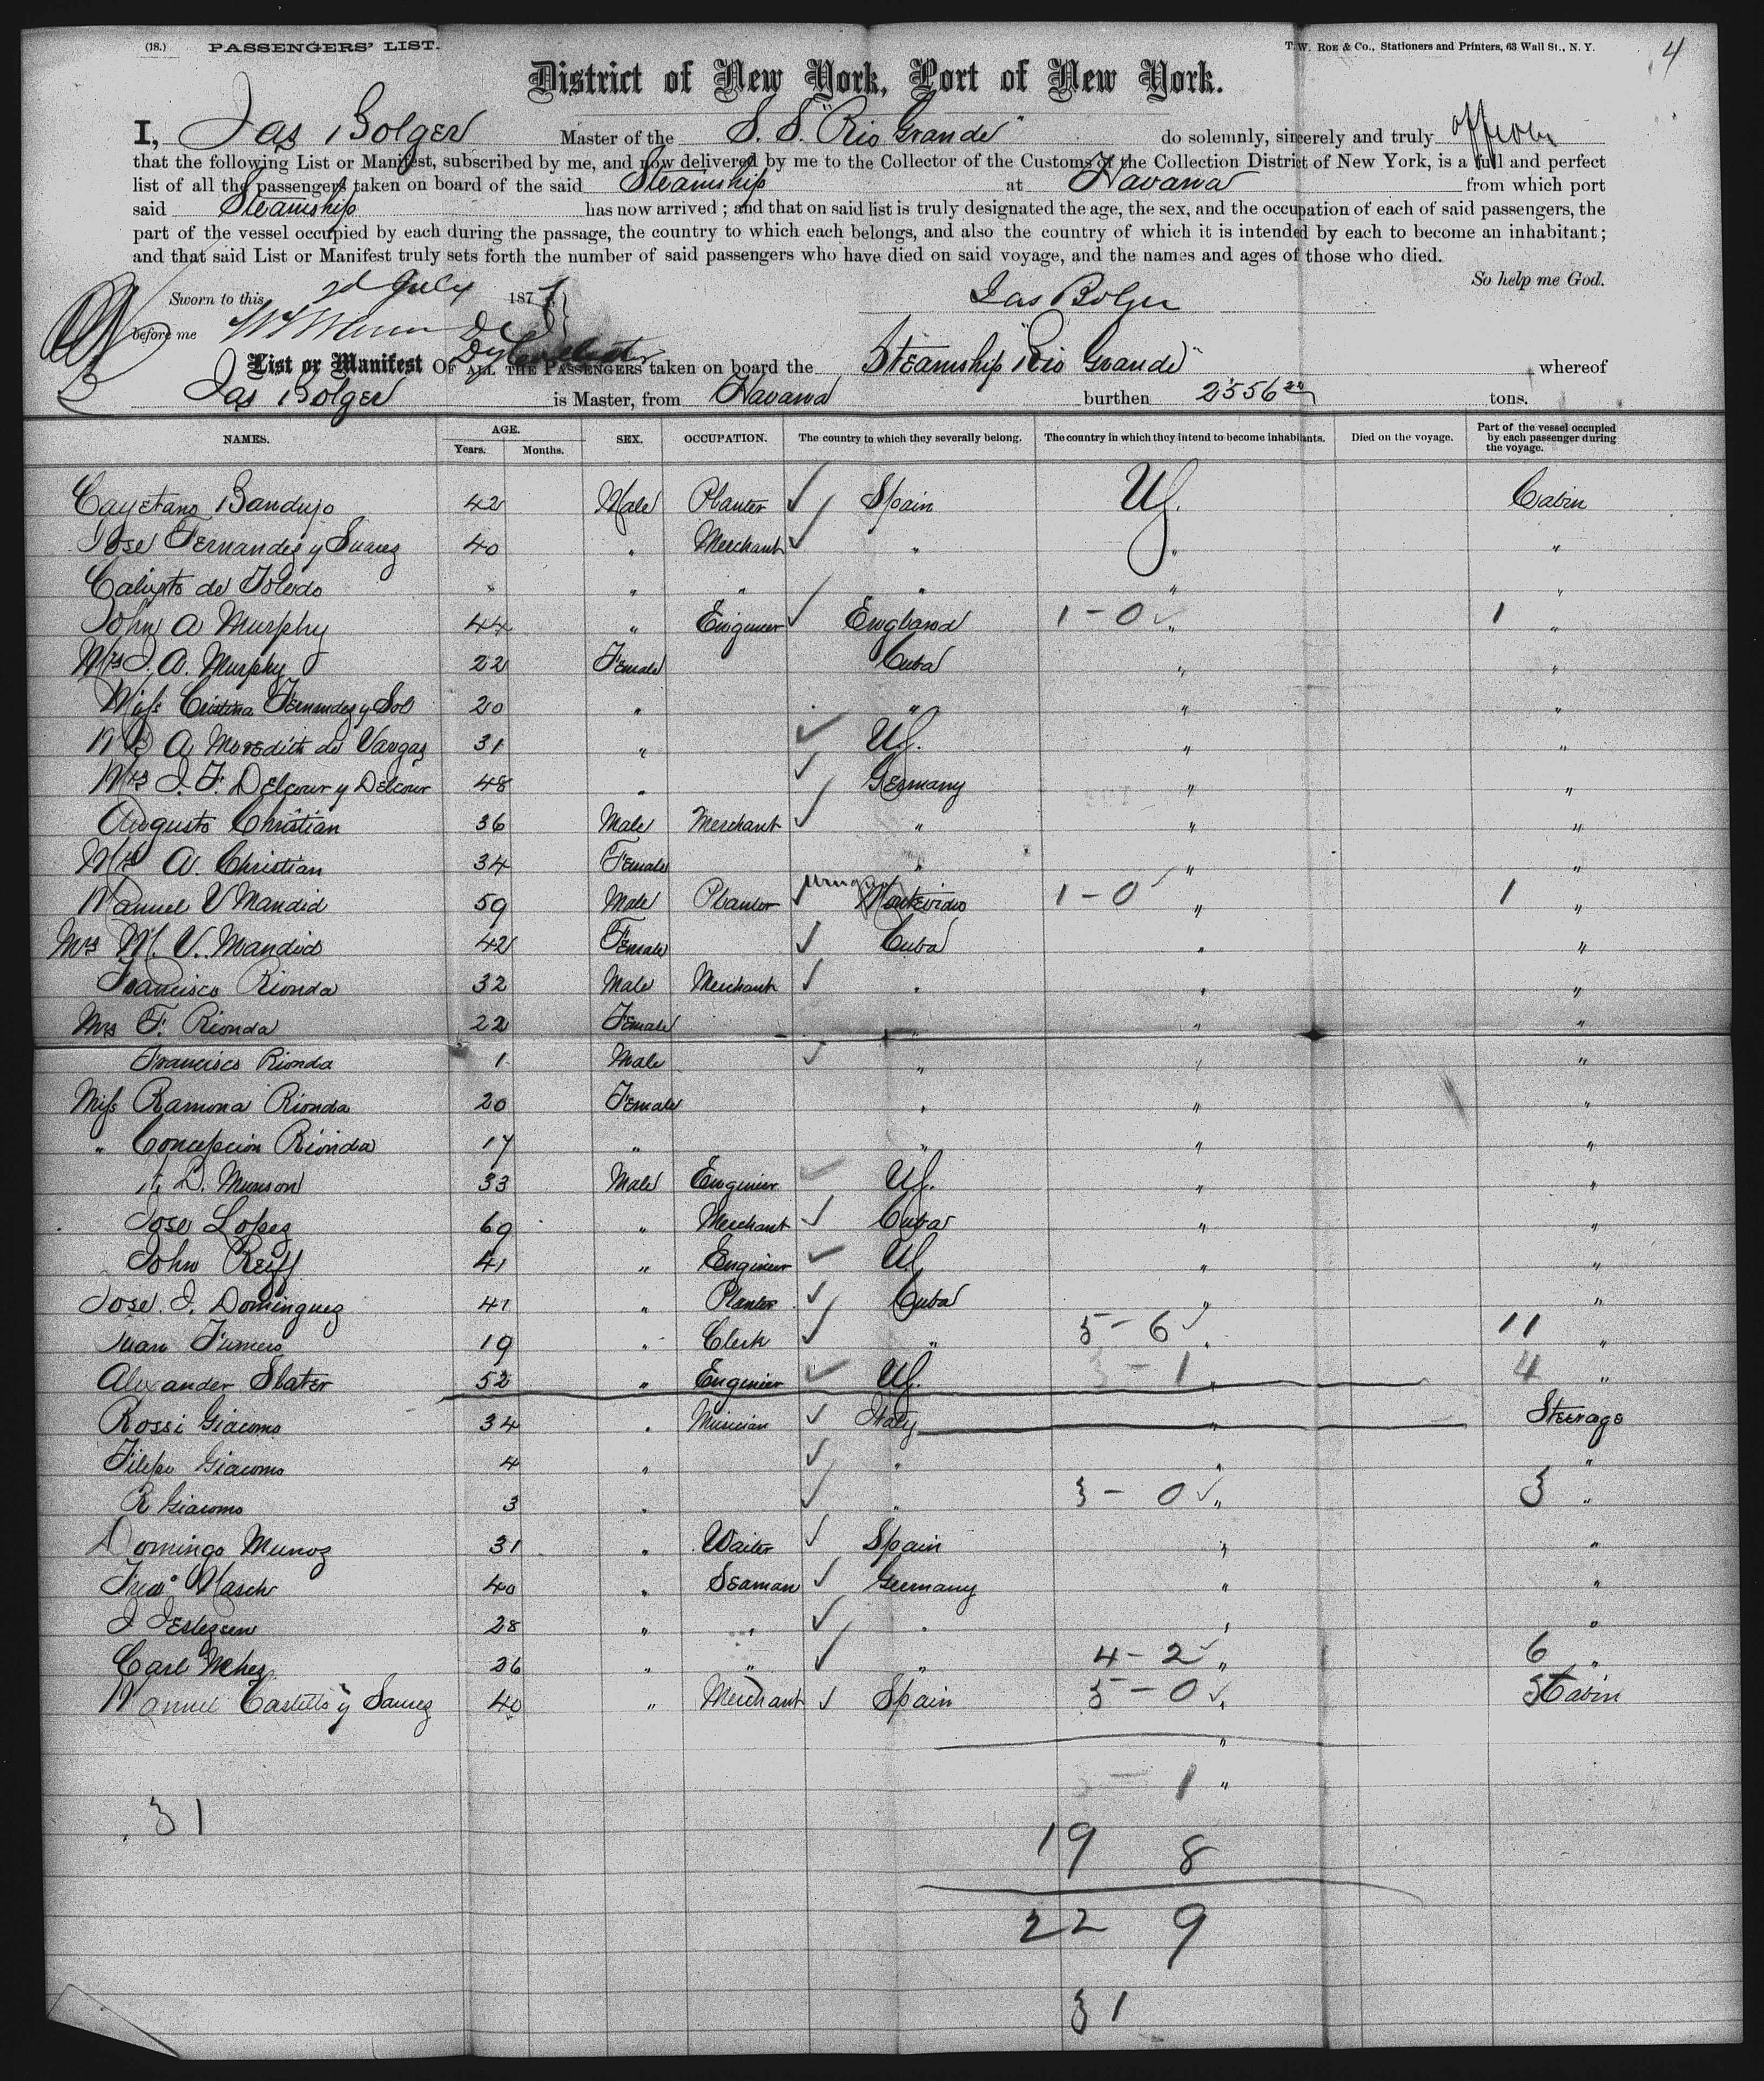 (18.) PASSENGERS' LIST. T. W. ROE & Co., Stationers and Printers, 63 Wall St., N. Y. 4
District of New York, Port of New York.
I, Jas Bolger Master of the S. S. "Rio Grande" do solemnly, sincerely and truly
that the following List or Manifest, subscribed by me, and now delivered by me to the Collector of the Customs of the Collection District of New York, is a full and perfect
list of all the passengers taken on board of the said Steamship at Havana from which port
said Steamship has now arrived; and that on said list is truly designated the age, the sex, and the occupation of each of said passengers, the
part of the vessel occupied by each during the passage, the country to which each belongs, and also the country of which it is intended by each to become an inhabitant;
and that said List or Manifest truly sets forth the number of said passengers who have died on said voyage, and the names and ages of those who died.
So help me God.
Sworn to this 2d July 187 Jas Bolger
before me
List or Manifest OF ALL THE PASSENGERS taken on board the Steamship "Rio Grande" whereof
Jas Bolger is Master, from Havana burthen 2556 tons.
NAMES. AGE. Years. Months. SEX. OCCUPATION. The country to which they severally belong. The country in which they intend to become inhabitants. Died on the voyage. Part of the vessel occupied by each passenger during the voyage.
Cayetano Bandujo 42 Male Planter Spain US. Cabin
Jose Fernandez y Suarez 40 " Merchant " " "
Calixto de Toledo " " " " " "
John A Murphy 44 " Engineer England 1-0 " 1 "
Mrs J. A. Murphy 22 Female Cuba " "
Miss Cristina Fernandez y Sol 20 " " " "
Mrs A Meredith de Vargas 31 " US. " "
Mrs J. F. Delcour y Delcour 48 " Germany " "
Augusto Christian 36 Male Merchant " " "
Mrs A. Christian 34 Female " " "
Manuel V Mandid 59 Male Planter Montevideo 1-0 " 1 "
Mrs M. V. Mandid 42 Female Cuba " "
Francisco Rionda 32 Male Merchant " " "
Mrs F. Rionda 22 Female " " "
Francisco Rionda 1 Male " " "
Miss Ramona Rionda 20 Female " " "
" Concepcion Rionda 17 " " " "
D. Munson 33 Male Engineer US. " "
Jose Lopez 69 " Merchant Cuba " "
John Reiff 41 " Engineer US " "
Jose J. Dominguez 41 " Planter Cuba " "
Juan Fumero 19 " Clerk " 5-6 " 11 "
Alexander Slater 52 " Engineer US. 3-1 " 4 "
Rossi Giacomo 34 " Musician Italy " Steerage
Filipo Giacomo 4 " " " "
R Giacomo 3 " " 3-0 " 3 "
Domingo Munoz 31 " Waiter Spain " "
40 " Seaman Germany " "
28 " " " " "
Carl 26 " " " 4-2 " 6 "
Manuel Castillo y Suarez 40 " Merchant Spain 5-0 " 5 Cabin
"
3-1 "
31
19 8
22 9
31